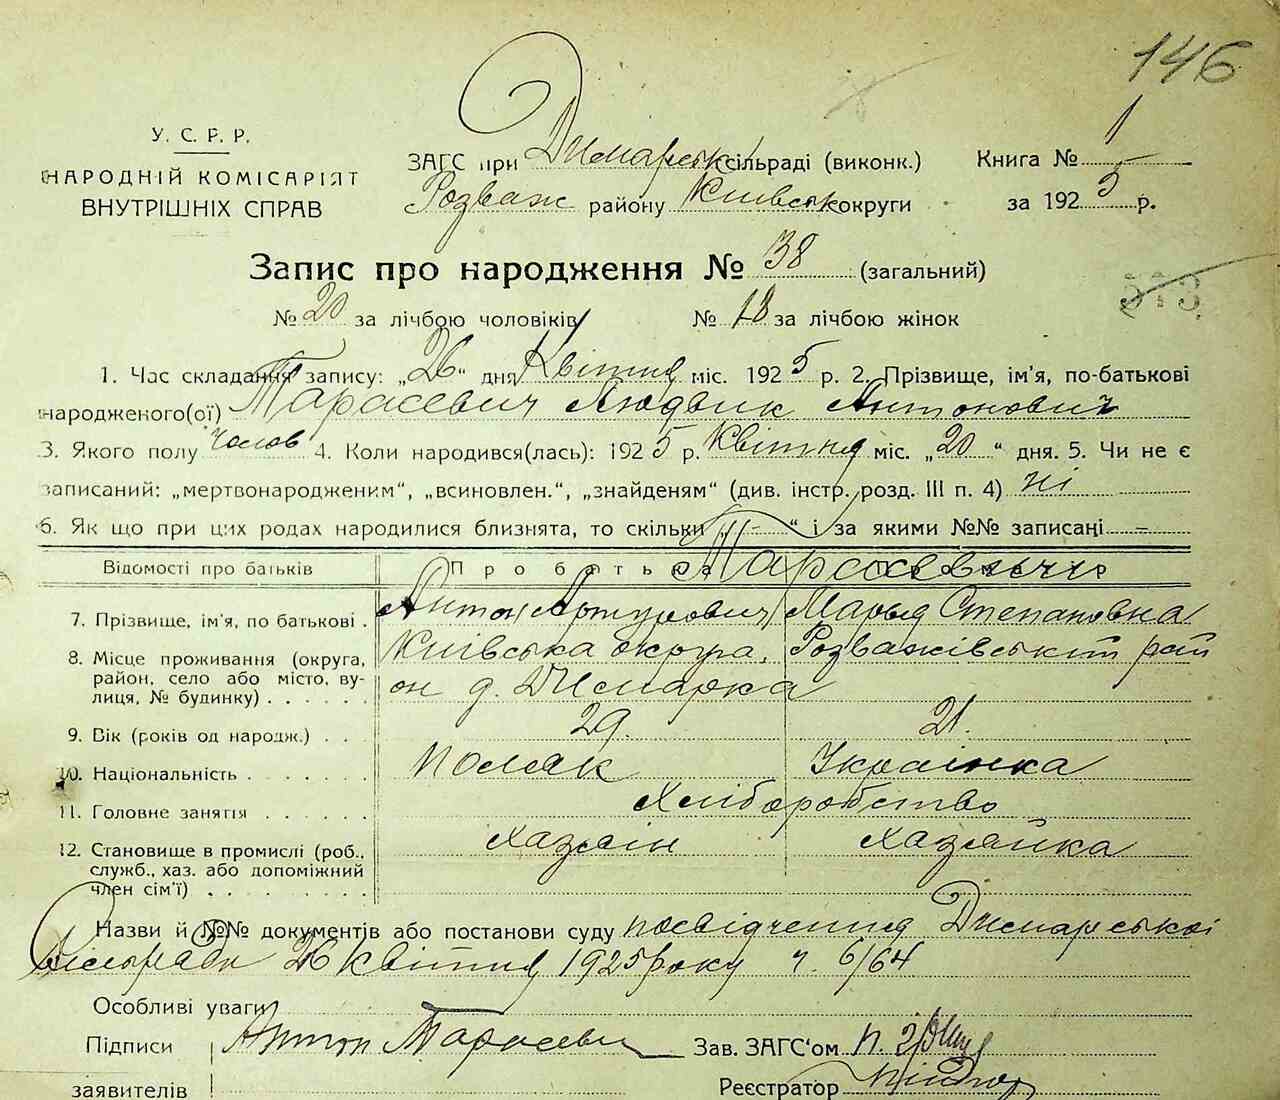 146
У. С. Р. Р.
НАРОДНІЙ КОМІСАРІЯТ
ВНУТРІШНІХ СПРАВ
ЗАГС при Димарськ сільраді (виконк.)
Розваж району Київськ округи
Книга № 1
за 1925 р.
Запис про народження № 38 (загальний)
№ 20 за лічбою чоловіків № 18 за лічбою жінок
1. Час складання запису: „26“ дня Квітня міс. 1925 р. 2. Прізвище, ім'я, по-батькові
народженого(ої) Тарасевич Людвик Антонович
3. Якого полу Чолов 4. Коли народився(лась): 1925 р. Квітня міс. „20“ дня. 5. Чи не є
записаний: „мертвонародженим“, „всиновлен.“, „знайденям“ (див. інстр. розд. III п. 4) ні
6. Як що при цих родах народилися близнята, то скільки „-“ і за якими №№ записані -
Відомості про батьків Про батька Тарасевичи
7. Прізвище, ім'я, по батькові . Антон Артурович Марья Степановна
8. Місце проживання (округа, Київська округа, Розважівський рай
район, село або місто, ву- он д. Димарка
лиця, № будинку) . . . . . .
9. Вік (років од народж.) . . . 29. 21.
10. Національність . . . . . . . Поляк Українка
11. Головне заняття . . . . . . Хліборобство
12. Становище в промислі (роб., хазяін хазяйка
служб., хаз. або допоміжний
член сім'ї) . . . . . . . . .
Назви й №№ документів або постанови суду посвідчення Димарської
сільради 26 Квітня 1925 року ч. 6/64
Особливі уваги
Підписи Антон Тарасеви Зав. ЗАГС'ом
заявителів Реєстратор